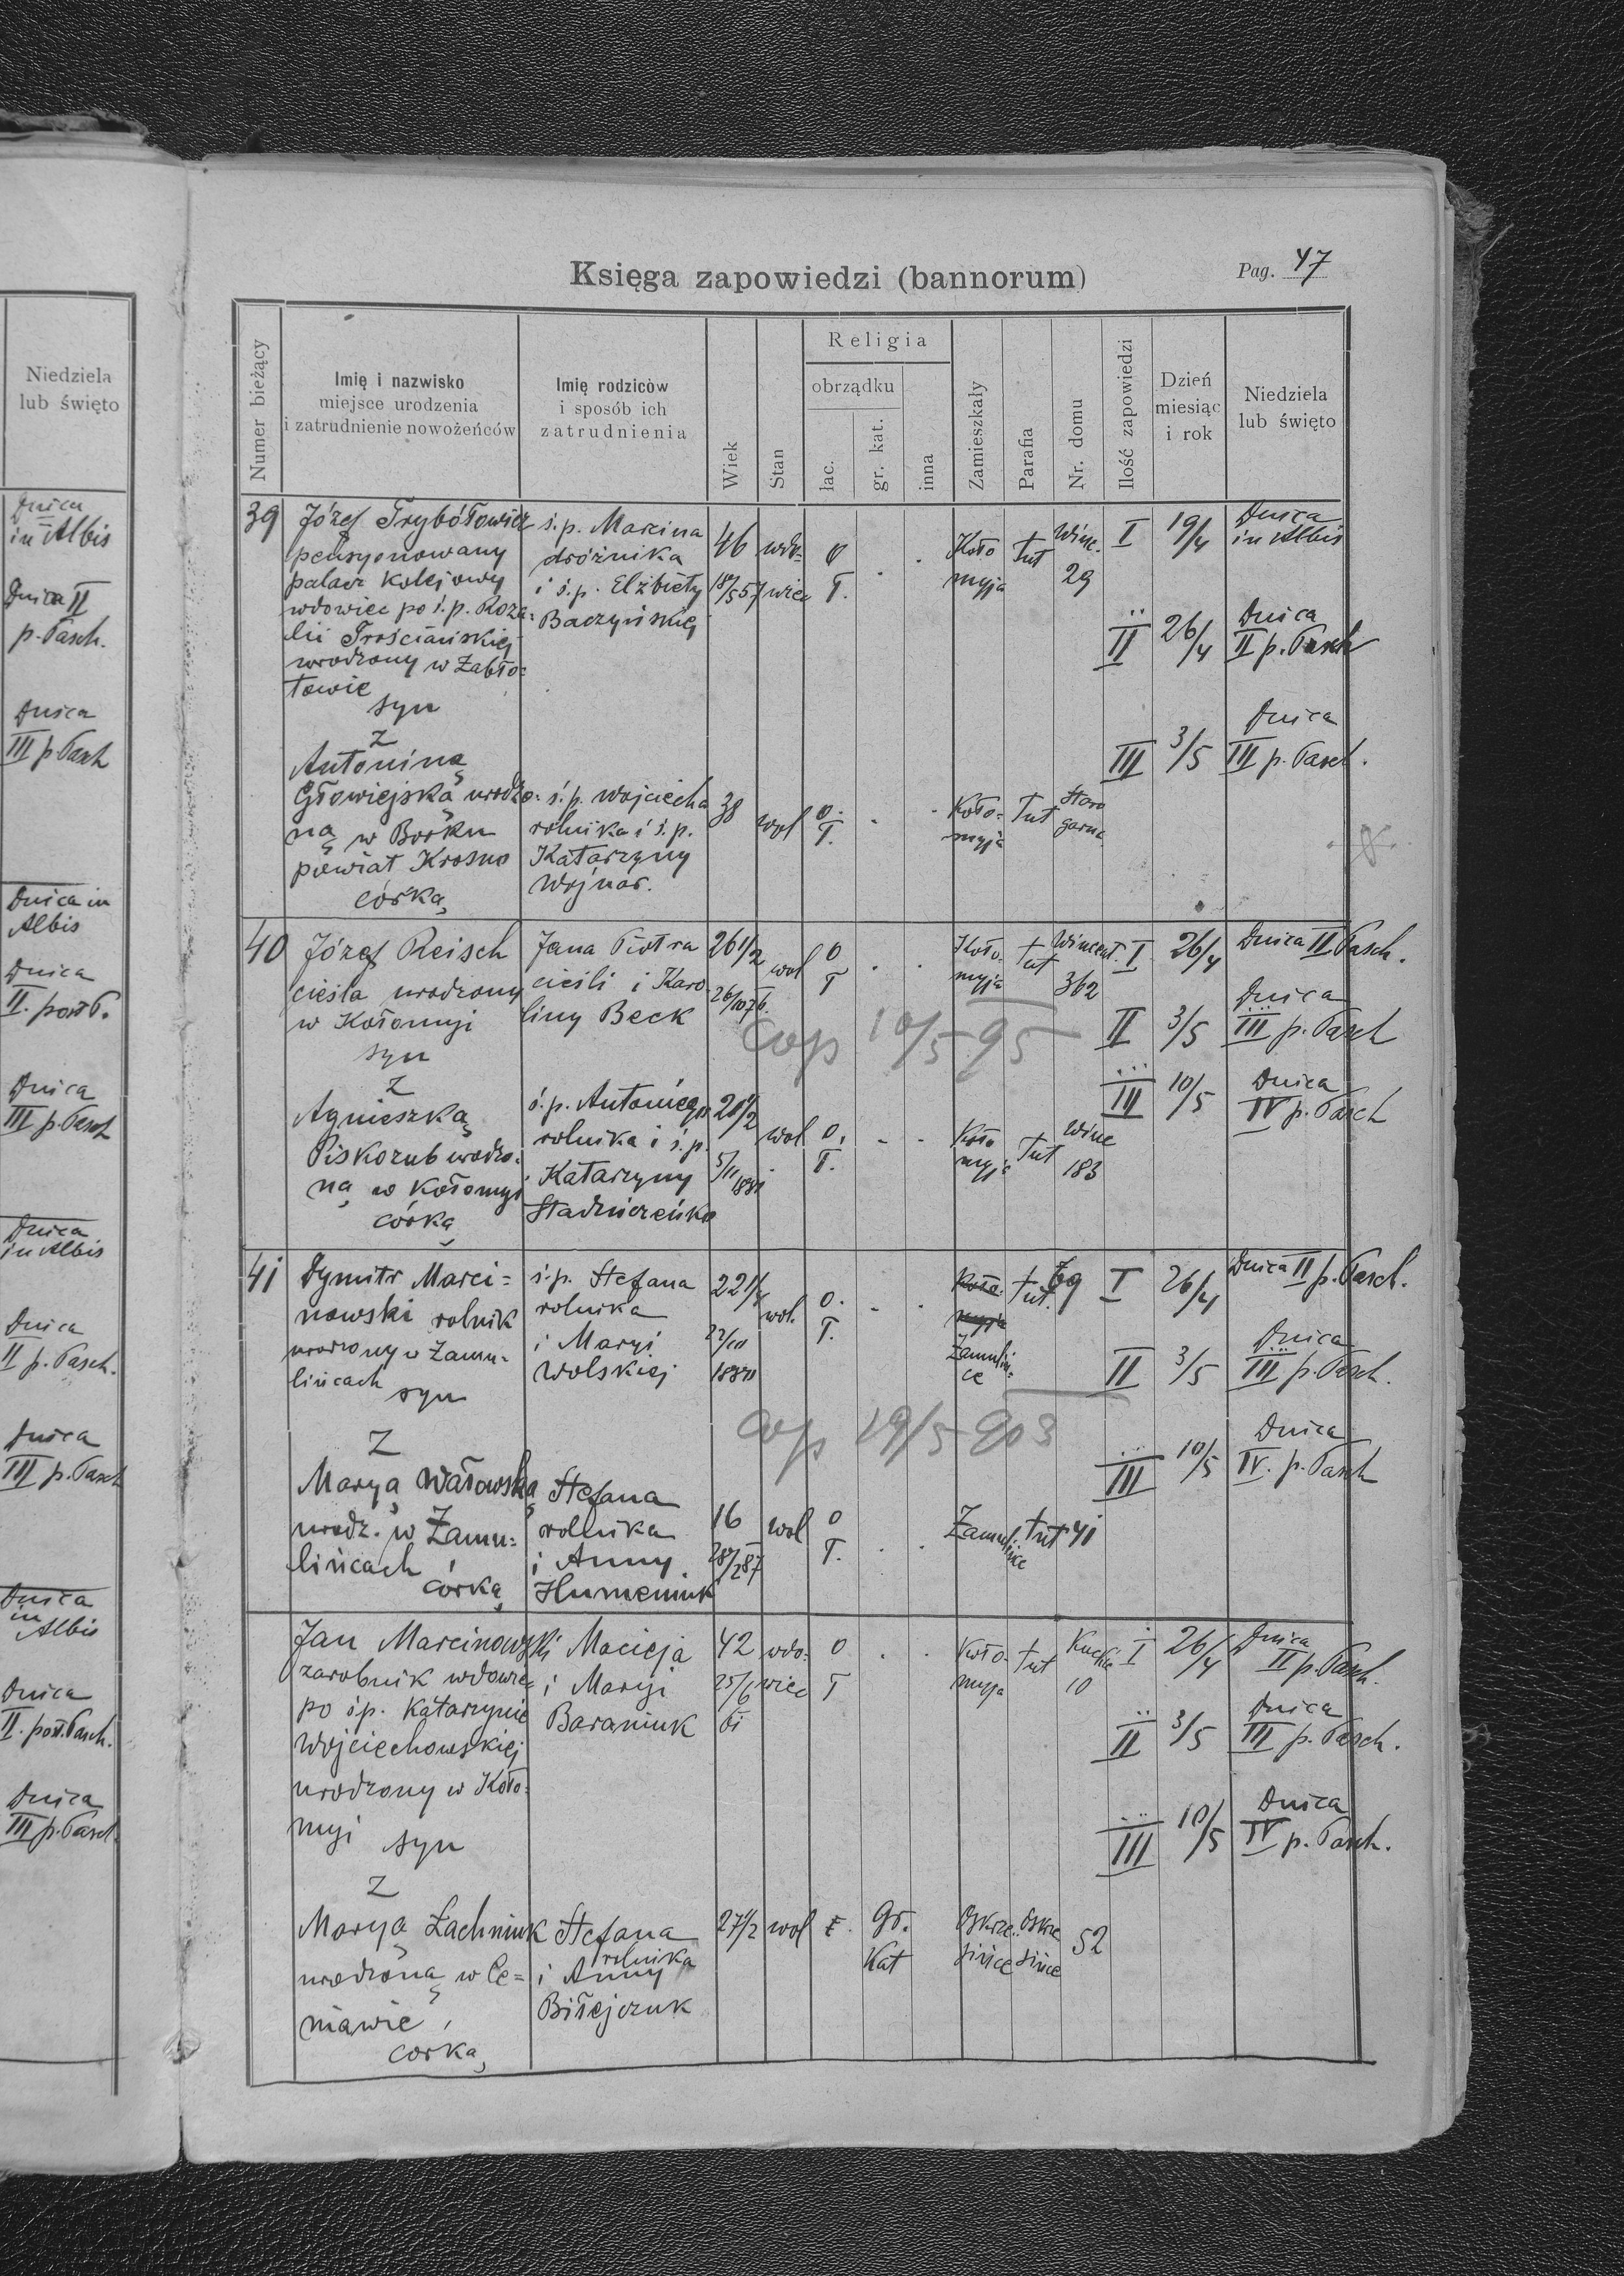 Niedziela
lub święto
Dnica
in Albis
Dnica II
p. Pasch.
Dnica
III p. Pasch
Dnica in
Albis
Dnica
II. post P.
Dnica
III p. Pasch
Dnica
in Albis
Dnica
II p. Pasch.
Dnica
III p. Pasch
Dnica
in
Albis
Dnica
II. post Pasch.
Dnica
III p. Pasch.
Księga zapowiedzi (bannorum)
Pag. 47
Numer bieżący
Imię i nazwisko
miejsce urodzenia
i zatrudnienie nowożeńców
Imię rodziców
i sposób ich
zatrudnienia
Wiek
Stan
Religia
obrządku
łac.
gr. kat.
inna
Zamieszkały
Parafia
Nr. domu
Ilość zapowiedzi
Dzień
miesiąc
i rok
Niedziela
lub święto
39
Józef Trybółowicz
pensyonowany
palacz kolejowy
wdowiec po ś.p. Roza-
lii Trościańskiej
urodzony w Zabło-
towie
syn
z
Antoniną
Głowiejską urodzo-
ną w Borku
powiat Krosno
córką
ś.p. Marcina
dróżnika
i ś.p. Elżbiety
Baczyńskiej
46
18/5 57
wdo-
wiec
O
T.
Koło
myja
tut
Winc.
29
I 19/4 Dnica
in Albis
II 26/4 Dnica
II p. Pasch
III 3/5 Dnica
III p. Pasch.
ś.p. Wojciecha
rolnika i ś.p.
Katarzyny
Wojnar.
38
wol
O.
T.
Koło-
myja
tut
40
Józef Reisch
cieśla urodzony
w Kołomyi
syn
z
Agnieszką
Piskozub urodzo-
ną w Kołomyi
córką
Jana Piotra
cieśli i Karo-
liny Beck
26 1/2
26/10 76.
wol
O
T
Koło-
myja
tut
Wincent.
362
I 26/4 Dnica II Pasch.
II 3/5 Dnica
III p. Pasch
III 10/5 Dnica
IV p. Pasch
cop 10/5
ś.p. Antoniego
rolnika i ś.p.
Katarzyny
wol
O.
T.
Koło
myja
tut
Winc
183
41
Dymitr Marci=
nowski rolnik
urodzony w Zamu-
lińcach
syn
z
Maryą Wałowską
urodz. w Zamu=
lińcach
córką
ś.p. Stefana
rolnika
i Maryi
Wolskiej
wol.
O.
T.
Koło-
myja
Zamulin-
ce
tut.
69
I 26/4 Dnica II p. Pasch.
II 3/5 Dnica
III p. Pasch.
III 10/5 Dnica
IV. p. Pasch
cop 19/5 903
Stefana
rolnika
i Anny
Humeniuk
16
28/2 87
wol
O
T.
Zamulince
tut
41
Jan Marcinowski
zarobnik wdowiec
po ś.p. Katarzynie
Wojciechowskiej
urodzony w Koło-
myi
syn
z
Maryą Łachniuk
urodzoną w Ce=
niawie
córką
Macieja
i Maryi
Baraniuk
42
25/6
61
wdo-
wiec
O
T
Koło-
myja
tut
10
I 26/4 Dnica
II p. Pasch.
II 3/5 Dnica
III p. Pasch.
III 10/5 Dnica
IV p. Pasch.
Stefana
rolnika
i Anny
Biłejczuk
27 1/2
wol
gr.
Kat
Oskrze-
sińce
Oskrze
sińce
52